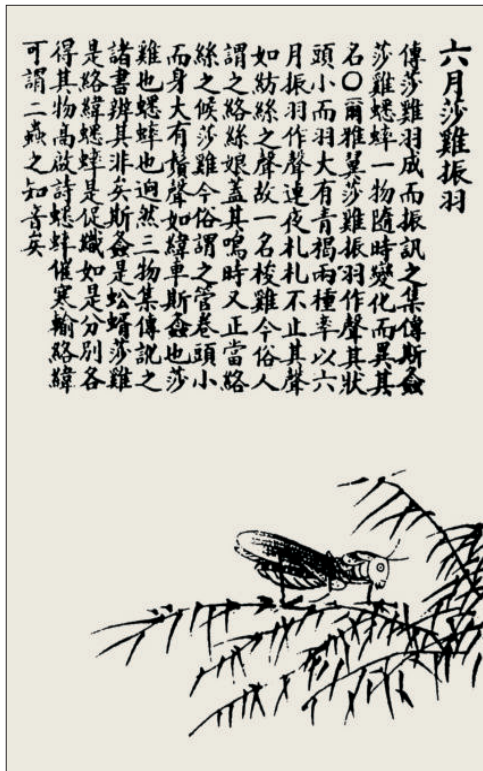 六月莎雞振羽
傳莎雞羽成而振訊之集傳斯螽
莎雞蟋蟀一物隨時變化而異其
名〇爾雅翼莎雞振羽作聲其狀
頭小而羽大有青褐兩種率以六
月振羽作聲連夜札札不止其聲
如紡絲之聲故一名梭雞今俗人
謂之絡絲娘蓋其鳴時又正當絡
絲之候莎雞今俗謂之管卷頭小
而身大有鬚聲如緯車斯螽也莎
雞也蟋蟀也迥然三物集傳說之
諸書辨其非矣斯螽是蚣蝑莎雞
是絡緯蟋蟀是促織如是分別各
得其物高啟詩蟋蟀催寒輸絡緯
可謂二蟲之知音矣